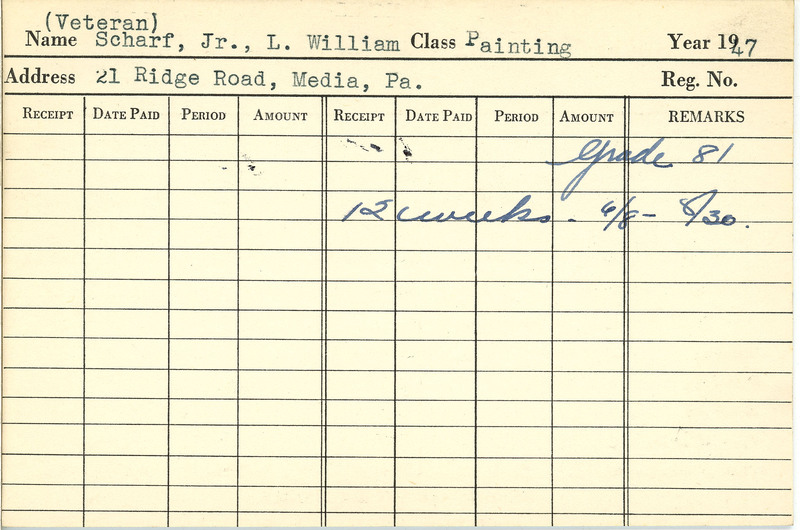 (Veteran)
Name Scharf, Jr., L. William Class Painting Year 1947
Address 21 Ridge Road, Media, Pa. Reg. No.
RECEIPT DATE PAID PERIOD AMOUNT RECEIPT DATE PAID PERIOD AMOUNT REMARKS
Grade 81
12 weeks - 6/8 - 8/30.